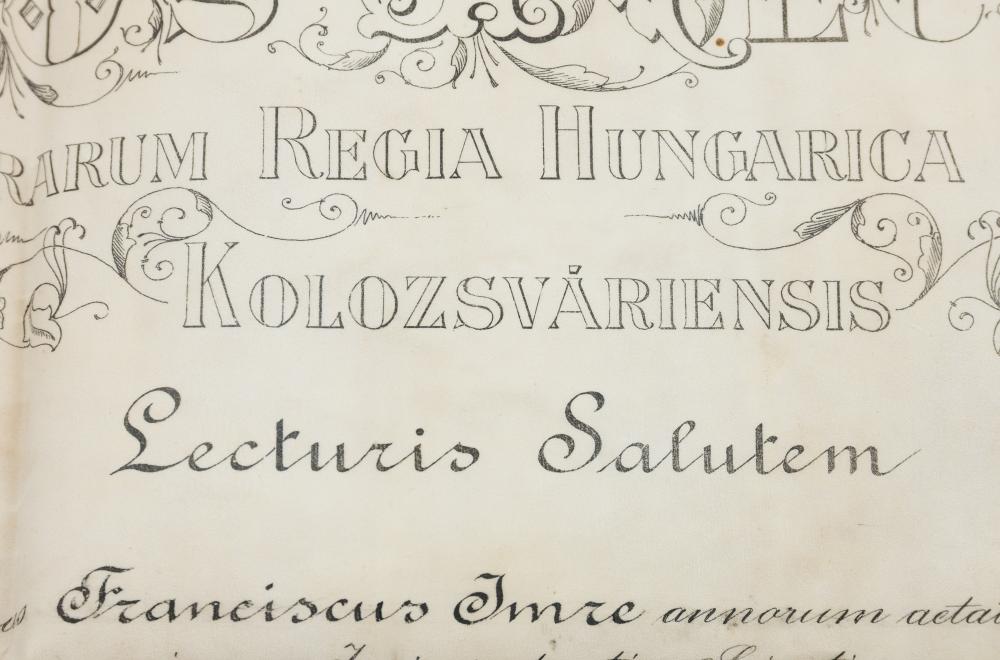 RARUM REGIA HUNGARICA
KOLOZSVÁRIENSIS
Lecturis Salutem
Franciscus Imre annorum aetat